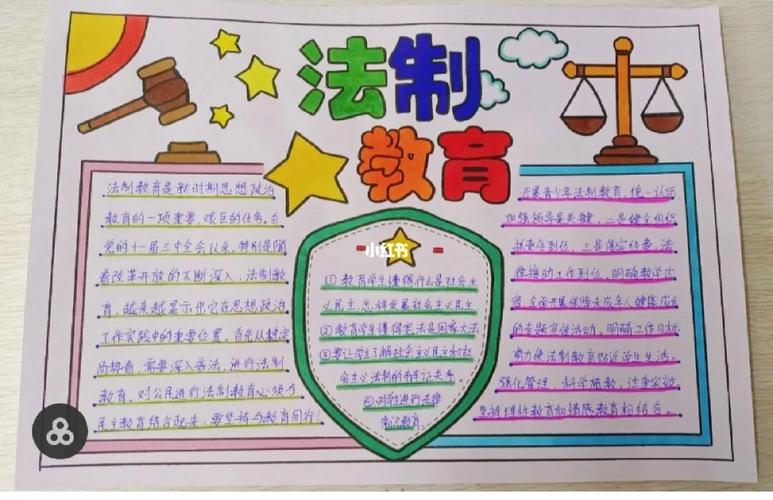 法制
教育
法制教育是新时期思想政治
教育的一项重要、艰巨的任务,自
党的十一届三中全会以来,特别是随
着改革开放的不断深入,法制教
育,越来越显示出它在思想政治
工作实践中的重要位置,首先从稳定
局势看,需要深入普法,进行法制
教育,对公民进行法制教育必须与
民主教育结合起来,要坚持与教育同行!
小红书
①教育学生懂得什么是社会主
义民主,怎样发展社会主义民主
②教育学生懂得宪法是国家大法
③要让学生了解社会主义民主和社
会主义法制的辩证关系
④对学生进行法律
常识教育.
开展青少年法制教育,统一认识
加强领导是关键,二是健全组织
抓责任到位,三是落实经费,法
维持助工作到位,明确教学内
容,全面开展保障未成年人健康成长
的专题宣传活动,明确工作目标
努力使法制教育贴近学生生活。
强化管理,科学施教,注重实效
坚持理性教育和情感教育相结合。